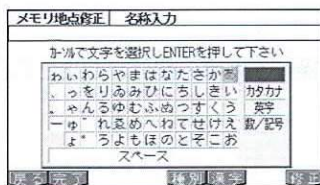 メモリ地点修正 名称入力
カーソルで文字を選択しENTERを押して下さい
ゎぃわらやまはなたさかあ
、っをりゐみひにちしきい カタカナ
。ゃんるゆむふぬつすくう 英字
ーゅ゛れゑめへねてせけえ 数/記号
ょ゜ろよもほのとそこお
スペース
戻る 完了 種別 漢字 修正